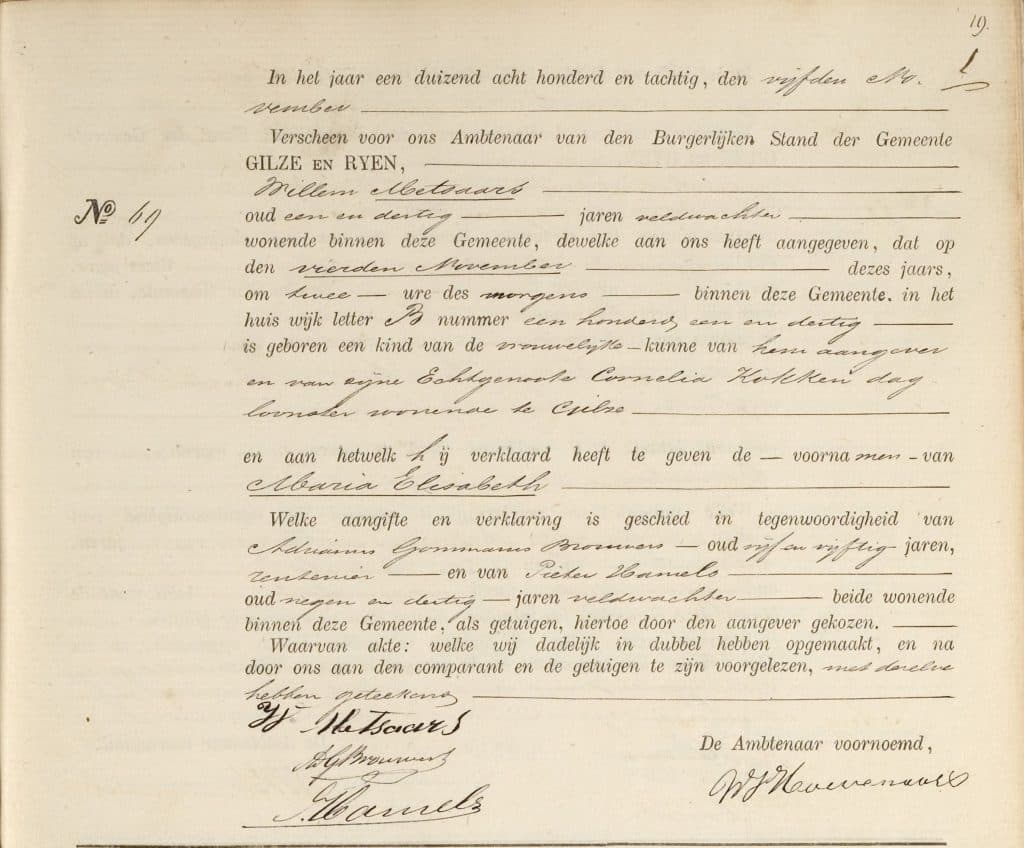 19.
1
In het jaar een duizend acht honderd en tachtig, den vijfden No-
vember
Verscheen voor ons Ambtenaar van den Burgerlijken Stand der Gemeente
GILZE EN RYEN,
Willem Metsaars
No 69
oud een en dertig jaren veldwachter
wonende binnen deze Gemeente, dewelke aan ons heeft aangegeven, dat op
den vierden November dezes jaars,
om twee ure des morgens binnen deze Gemeente, in het
huis wijk letter B nummer een honderd een en dertig
is geboren een kind van de vrouwelijke kunne van hem aangever
en van zijne Echtgenoote Cornelia Kokken dag
loonster wonende te Gilze
en aan hetwelk hij verklaard heeft te geven de voornamen van
Maria Elisabeth
Welke aangifte en verklaring is geschied in tegenwoordigheid van
Adrianus Gommarus Brouwers oud vijf en vijftig jaren,
rentenier en van Pieter Hamels
oud negen en dertig jaren veldwachter beide wonende
binnen deze Gemeente, als getuigen, hiertoe door den aangever gekozen.
Waarvan akte: welke wij dadelijk in dubbel hebben opgemaakt, en na
door ons aan den comparant en de getuigen te zijn voorgelezen, met dezelve
hebben geteekend
W Metsaars
A G Brouwers
De Ambtenaar voornoemd,
P. Hamels